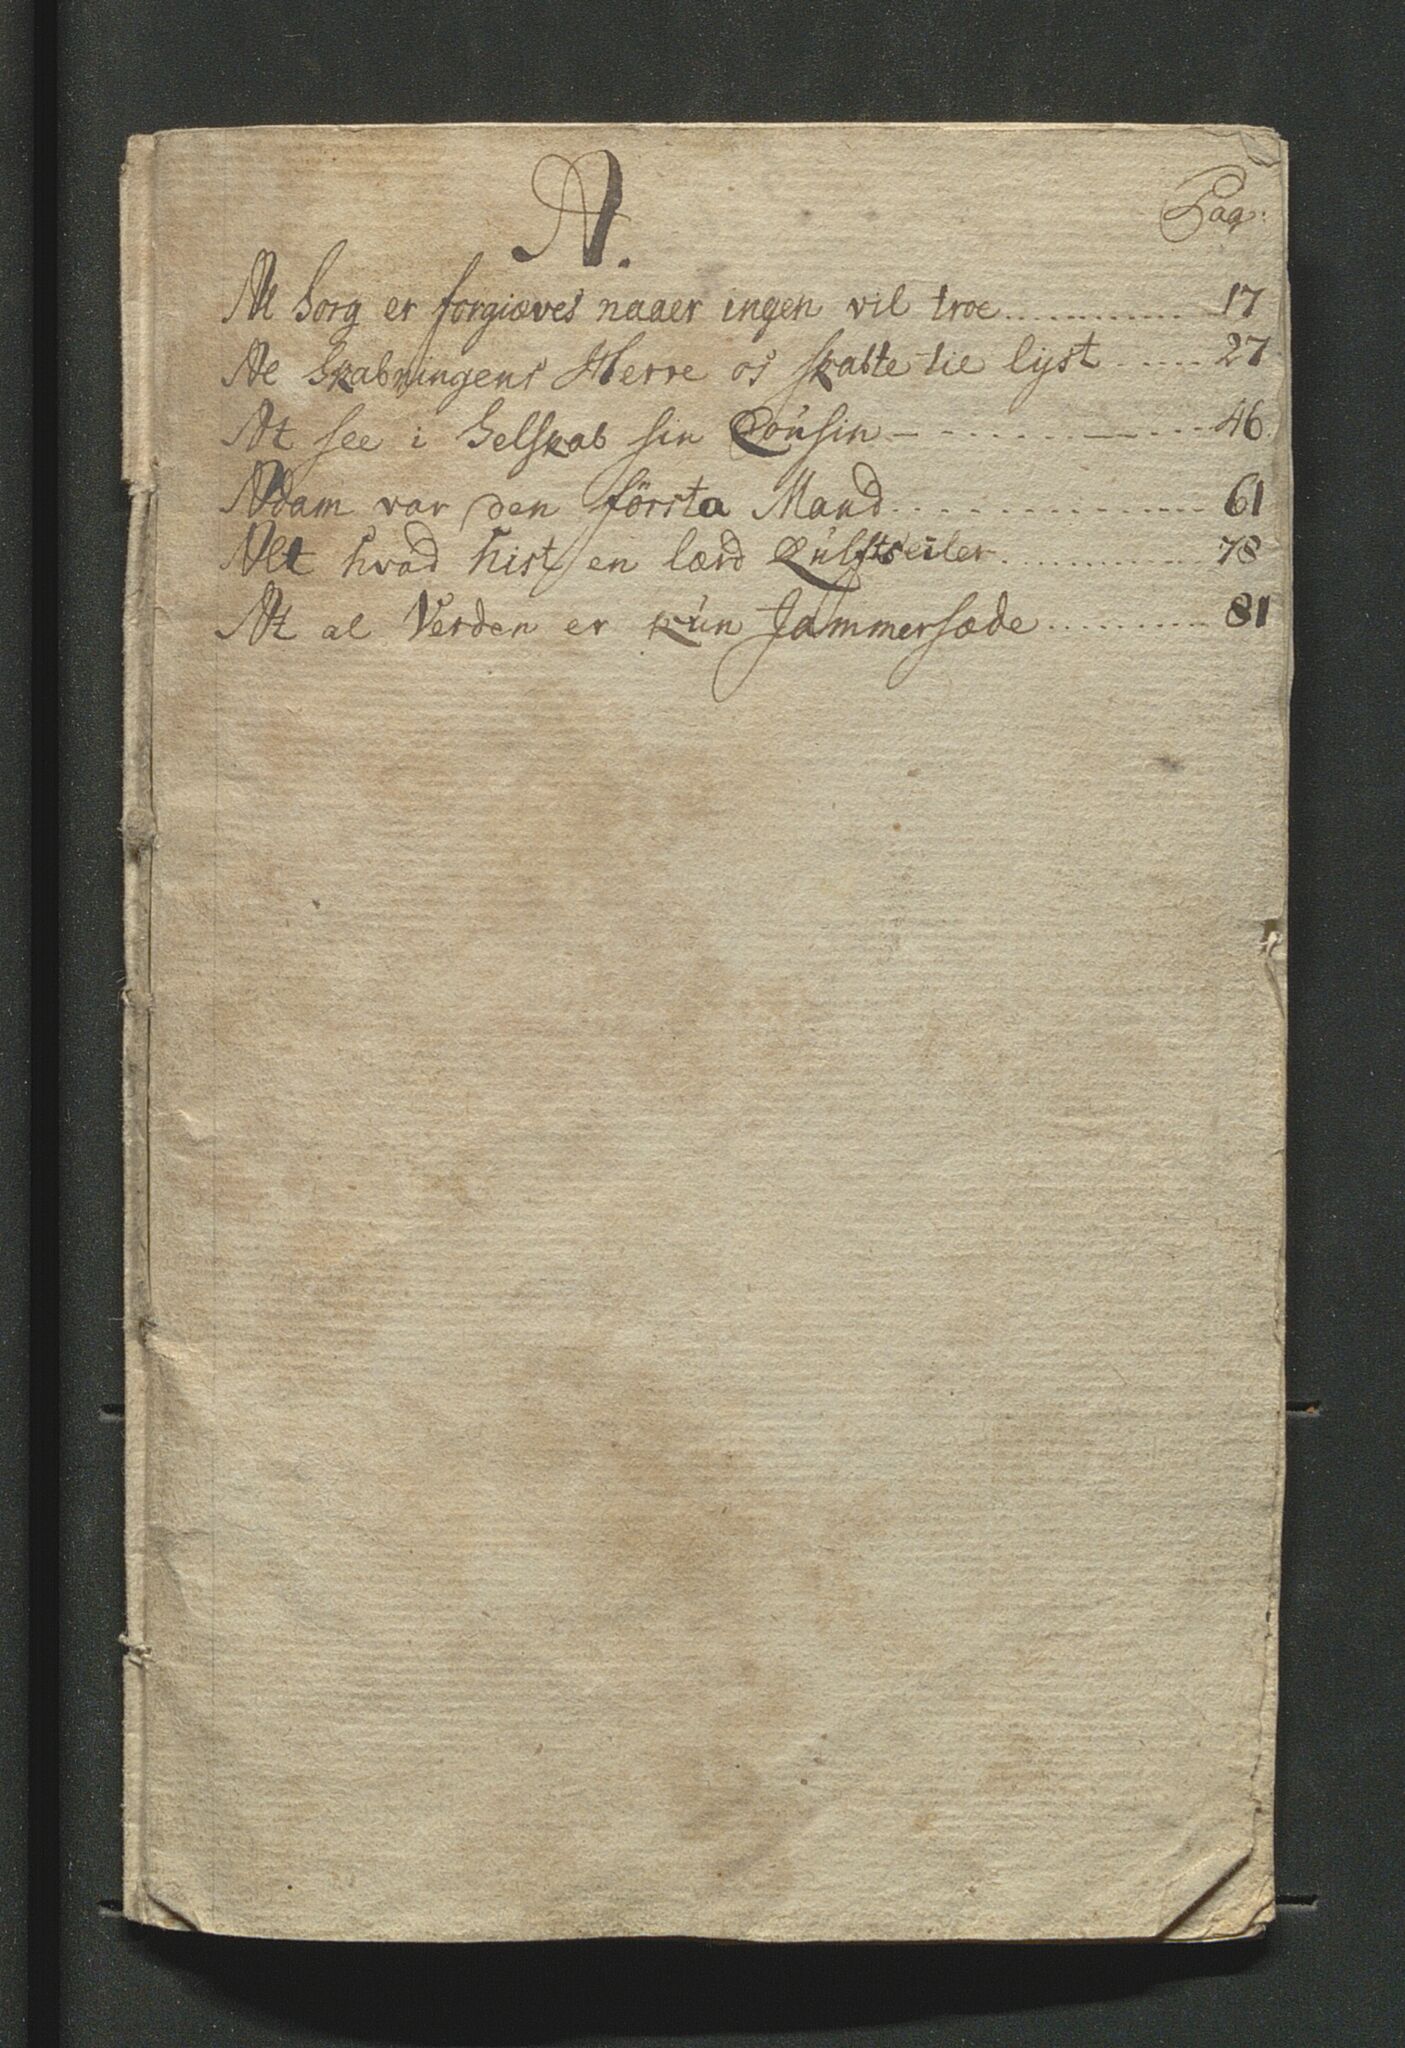 A.
Pag:
Al Sorg er forgiæves naaer ingen vil troe ............ 17
Al Skabningens Herre os skabte til lyst ..... 27
At see i Selskab sin Cousin ............ 46
Adam var den första Mand ............ 61
Alt hvad hist en lærd Luftseiler ............ 78
At al Verden er kun Jammersæde ............ 81